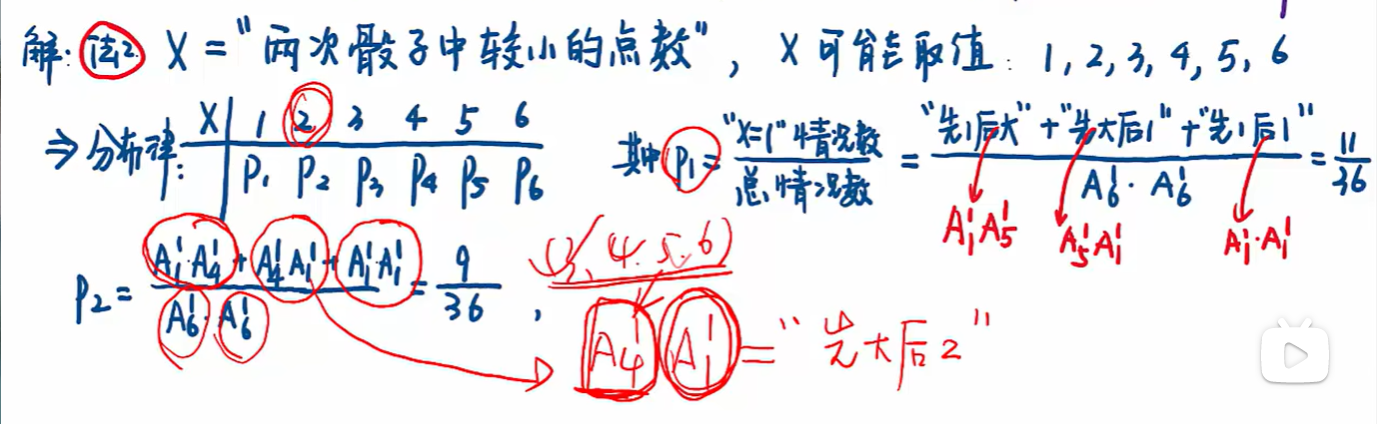 解: 法2 X = "两次骰子中较小的点数", X可能取值: 1, 2, 3, 4, 5, 6
⇒ 分布律: X | 1 2 3 4 5 6
P₁ P₂ P₃ P₄ P₅ P₆
其中 P₁ = "X=1"情况数 / 总情况数 = "先1后大" + "先大后1" + "先1后1" / A₆¹·A₆¹ = 11/36
A₁¹A₅¹ A₅¹A₁¹ A₁¹·A₁¹
P₂ = A₁¹·A₄¹ + A₄¹A₁¹ + A₁¹A₁¹ / A₆¹·A₆¹ = 9/36 ,
(3, 4. 5. 6)
A₄¹ A₁¹ = "先大后2"